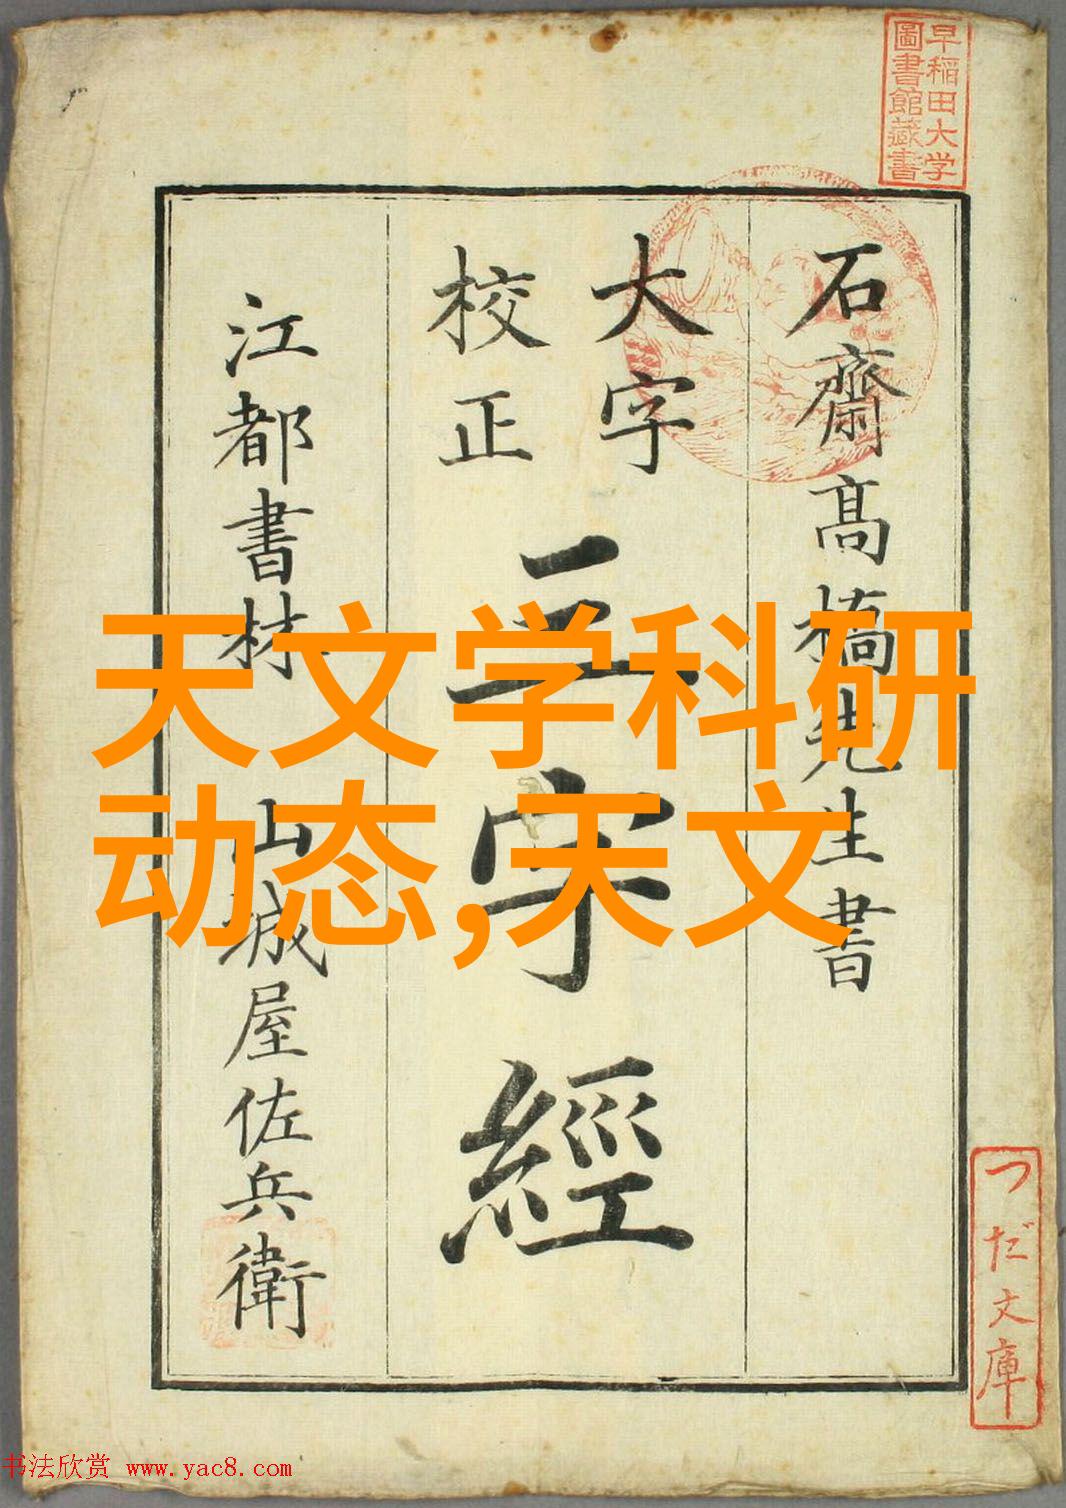 早稲田大学
圖書館藏書
石齋髙橋先生書
大字
校正
三字經
江都書林 山城屋佐兵衛
つだ文庫
天文学科研
动态,天文
书法欣赏 www.yac8.com